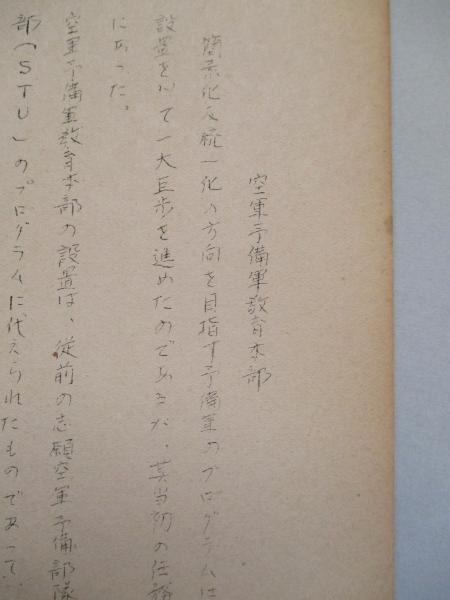 空軍予備軍教育本部
簡素化及統一化の方向を目指す予備軍のプログラムは
設置を以て一大巨歩を進めたのであるが、其当初の任務
にあった。
空軍予備軍教育本部の設置は、従前の志願空軍予備部隊
部（STU）のプログラムに代えられたものであって、